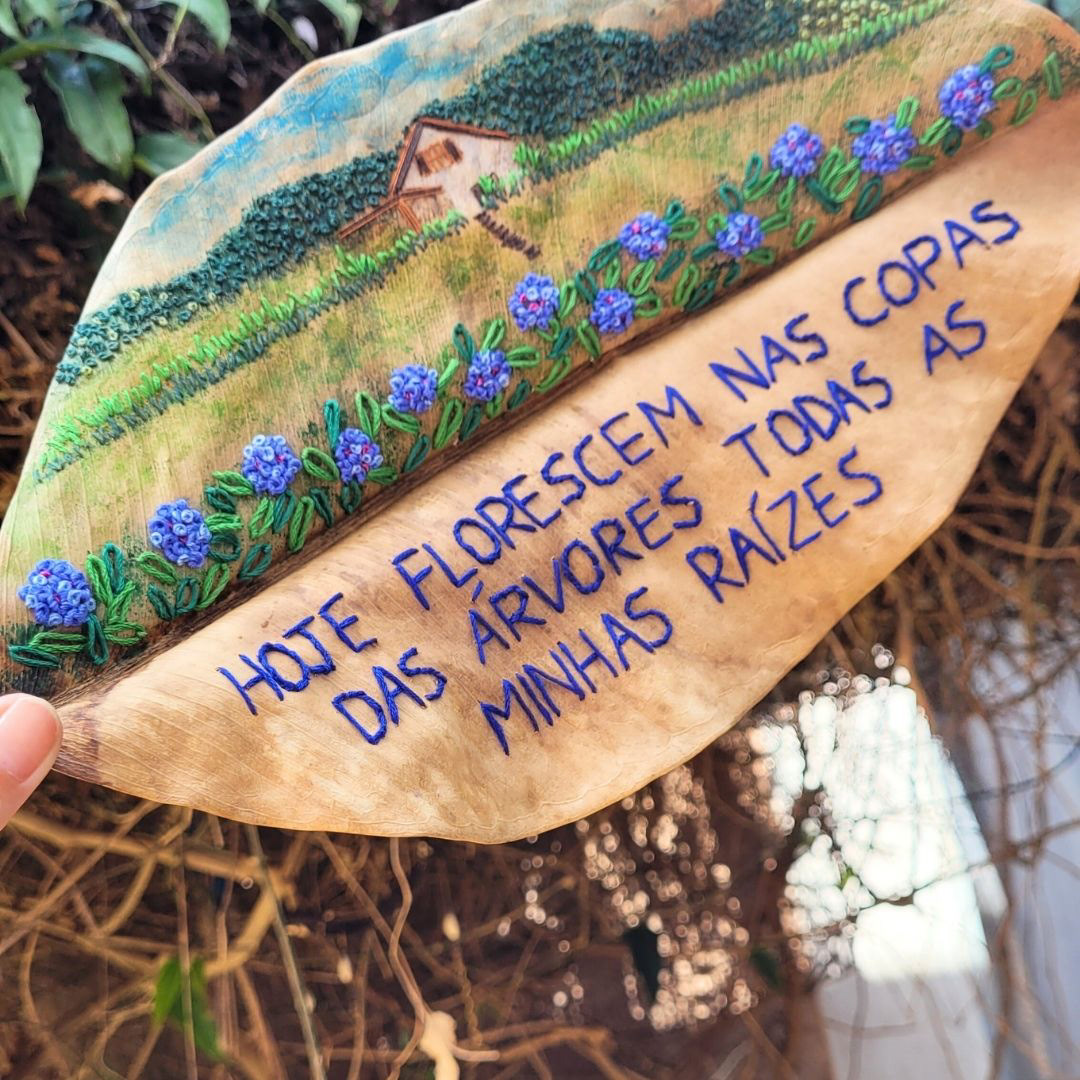 HOJE FLORESCEM NAS COPAS
DAS ÁRVORES TODAS AS
MINHAS RAÍZES